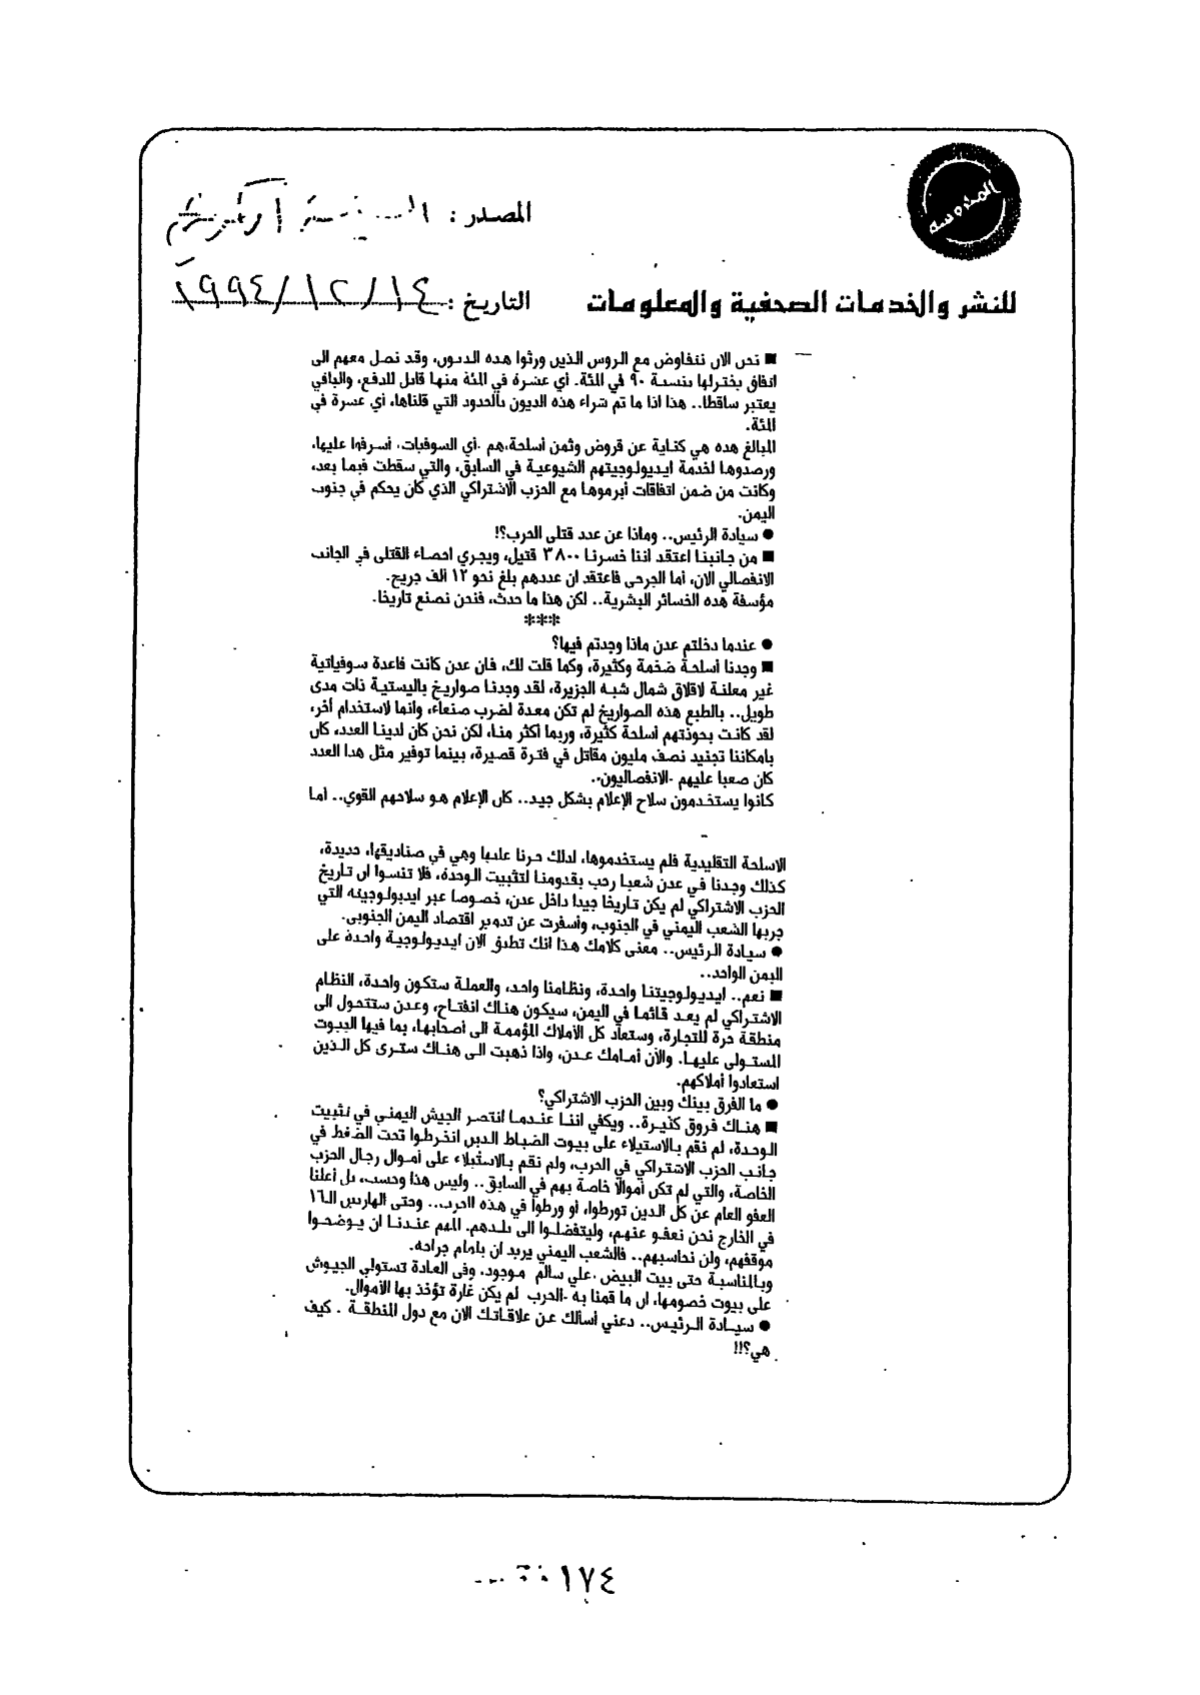 المدوسة
المصدر : السياسة الكويتية
للنشر والخدمات الصحفية والمعلومات
التاريخ : ١٩٩٤/١٢/١٤
■ نحن الان نتفاوض مع الروس الذين ورثوا هذه الديون، وقد نصل معهم الى
اتفاق يختزلها بنسبة ٩٠ في المئة. أي عشرة في المئة منها قابل للدفع، والباقي
يعتبر ساقطا.. هذا اذا ما تم شراء هذه الديون بالحدود التي قلناها، أي عشرة في
المئة.
المبالغ هذه هي كناية عن قروض وثمن أسلحة،هم ـ أي السوفيات، أسرفوا عليها،
ورصدوها لخدمة ايديولوجيتهم الشيوعية في السابق، والتي سقطت فيما بعد،
وكانت من ضمن اتفاقات أبرموها مع الحزب الاشتراكي الذي كان يحكم في جنوب
اليمن.
● سيادة الرئيس.. وماذا عن عدد قتلى الحرب؟!
■ من جانبنا اعتقد اننا خسرنا ٣٨٠٠ قتيل، ويجري احصاء القتلى في الجانب
الانفصالي الان، أما الجرحى فاعتقد ان عددهم بلغ نحو ١٢ ألف جريح.
مؤسفة هذه الخسائر البشرية.. لكن هذا ما حدث، فنحن نصنع تاريخا.
***
● عندما دخلتم عدن ماذا وجدتم فيها؟
■ وجدنا أسلحة ضخمة وكثيرة، وكما قلت لك، فان عدن كانت قاعدة سوفياتية
غير معلنة لاقلاق شمال شبه الجزيرة، لقد وجدنا صواريخ باليستية ذات مدى
طويل.. بالطبع هذه الصواريخ لم تكن معدة لضرب صنعاء، وانما لاستخدام أخر،
لقد كانت بحوذتهم أسلحة كثيرة، وربما اكثر منا، لكن نحن كان لدينا العدد، كان
بامكاننا تجنيد نصف مليون مقاتل في فترة قصيرة، بينما توفير مثل هذا العدد
كان صعبا عليهم -الانفصاليون-.
كانوا يستخدمون سلاح الإعلام بشكل جيد.. كان الإعلام هو سلاحهم القوي.. أما
الاسلحة التقليدية فلم يستخدموها، لذلك حزنا عليها وهي في صناديقها، جديدة،
كذلك وجدنا في عدن شعبا رحب بقدومنا لتثبيت الوحدة، فلا تنسوا ان تاريخ
الحزب الاشتراكي لم يكن تاريخا جيدا داخل عدن، خصوصا عبر ايديولوجيته التي
جربها الشعب اليمني في الجنوب، وأسفرت عن تدمير اقتصاد اليمن الجنوبي.
● سيادة الرئيس.. معنى كلامك هذا انك تطبق الان ايديولوجية واحدة على
اليمن الواحد..
■ نعم.. ايديولوجيتنا واحدة، ونظامنا واحد، والعملة ستكون واحدة، النظام
الاشتراكي لم يعد قائما في اليمن، سيكون هناك انفتاح، وعدن ستتحول الى
منطقة حرة للتجارة، وستعاد كل الأملاك المؤممة الى أصحابها، بما فيها البيوت
المستولى عليها. والأن أمامك عدن، واذا ذهبت الى هناك سترى كل الذين
استعادوا أملاكهم.
● ما الفرق بينك وبين الحزب الاشتراكي؟
■ هناك فروق كثيرة.. ويكفي اننا عندما انتصر الجيش اليمني في تثبيت
الوحدة، لم نقم بالاستيلاء على بيوت الضباط الذين انخرطوا تحت الضغط في
جانب الحزب الاشتراكي في الحرب، ولم نقم بالاستيلاء على أموال رجال الحزب
الخاصة، والتي لم تكن أموالا خاصة بهم في السابق.. وليس هذا وحسب، بل أعلنا
العفو العام عن كل الذين تورطوا، أو ورطوا في هذه الحرب.. وحتى الهاربين الـ١٦
في الخارج نحن نعفو عنهم، وليتفضلوا الى بلدهم. المهم عندنا ان يوضحوا
موقفهم، ولن نحاسبهم.. فالشعب اليمني يريد ان يلملم جراحه.
وبالمناسبة حتى بيت البيض ـ علي سالم ـ موجود، وفي العادة تستولي الجيوش
على بيوت خصومها، ان ما قمنا به -الحرب- لم يكن غارة تؤخذ بها الأموال.
● سيادة الرئيس.. دعني أسألك عن علاقاتك الان مع دول المنطقة . كيف
هي؟!!
١٧٤